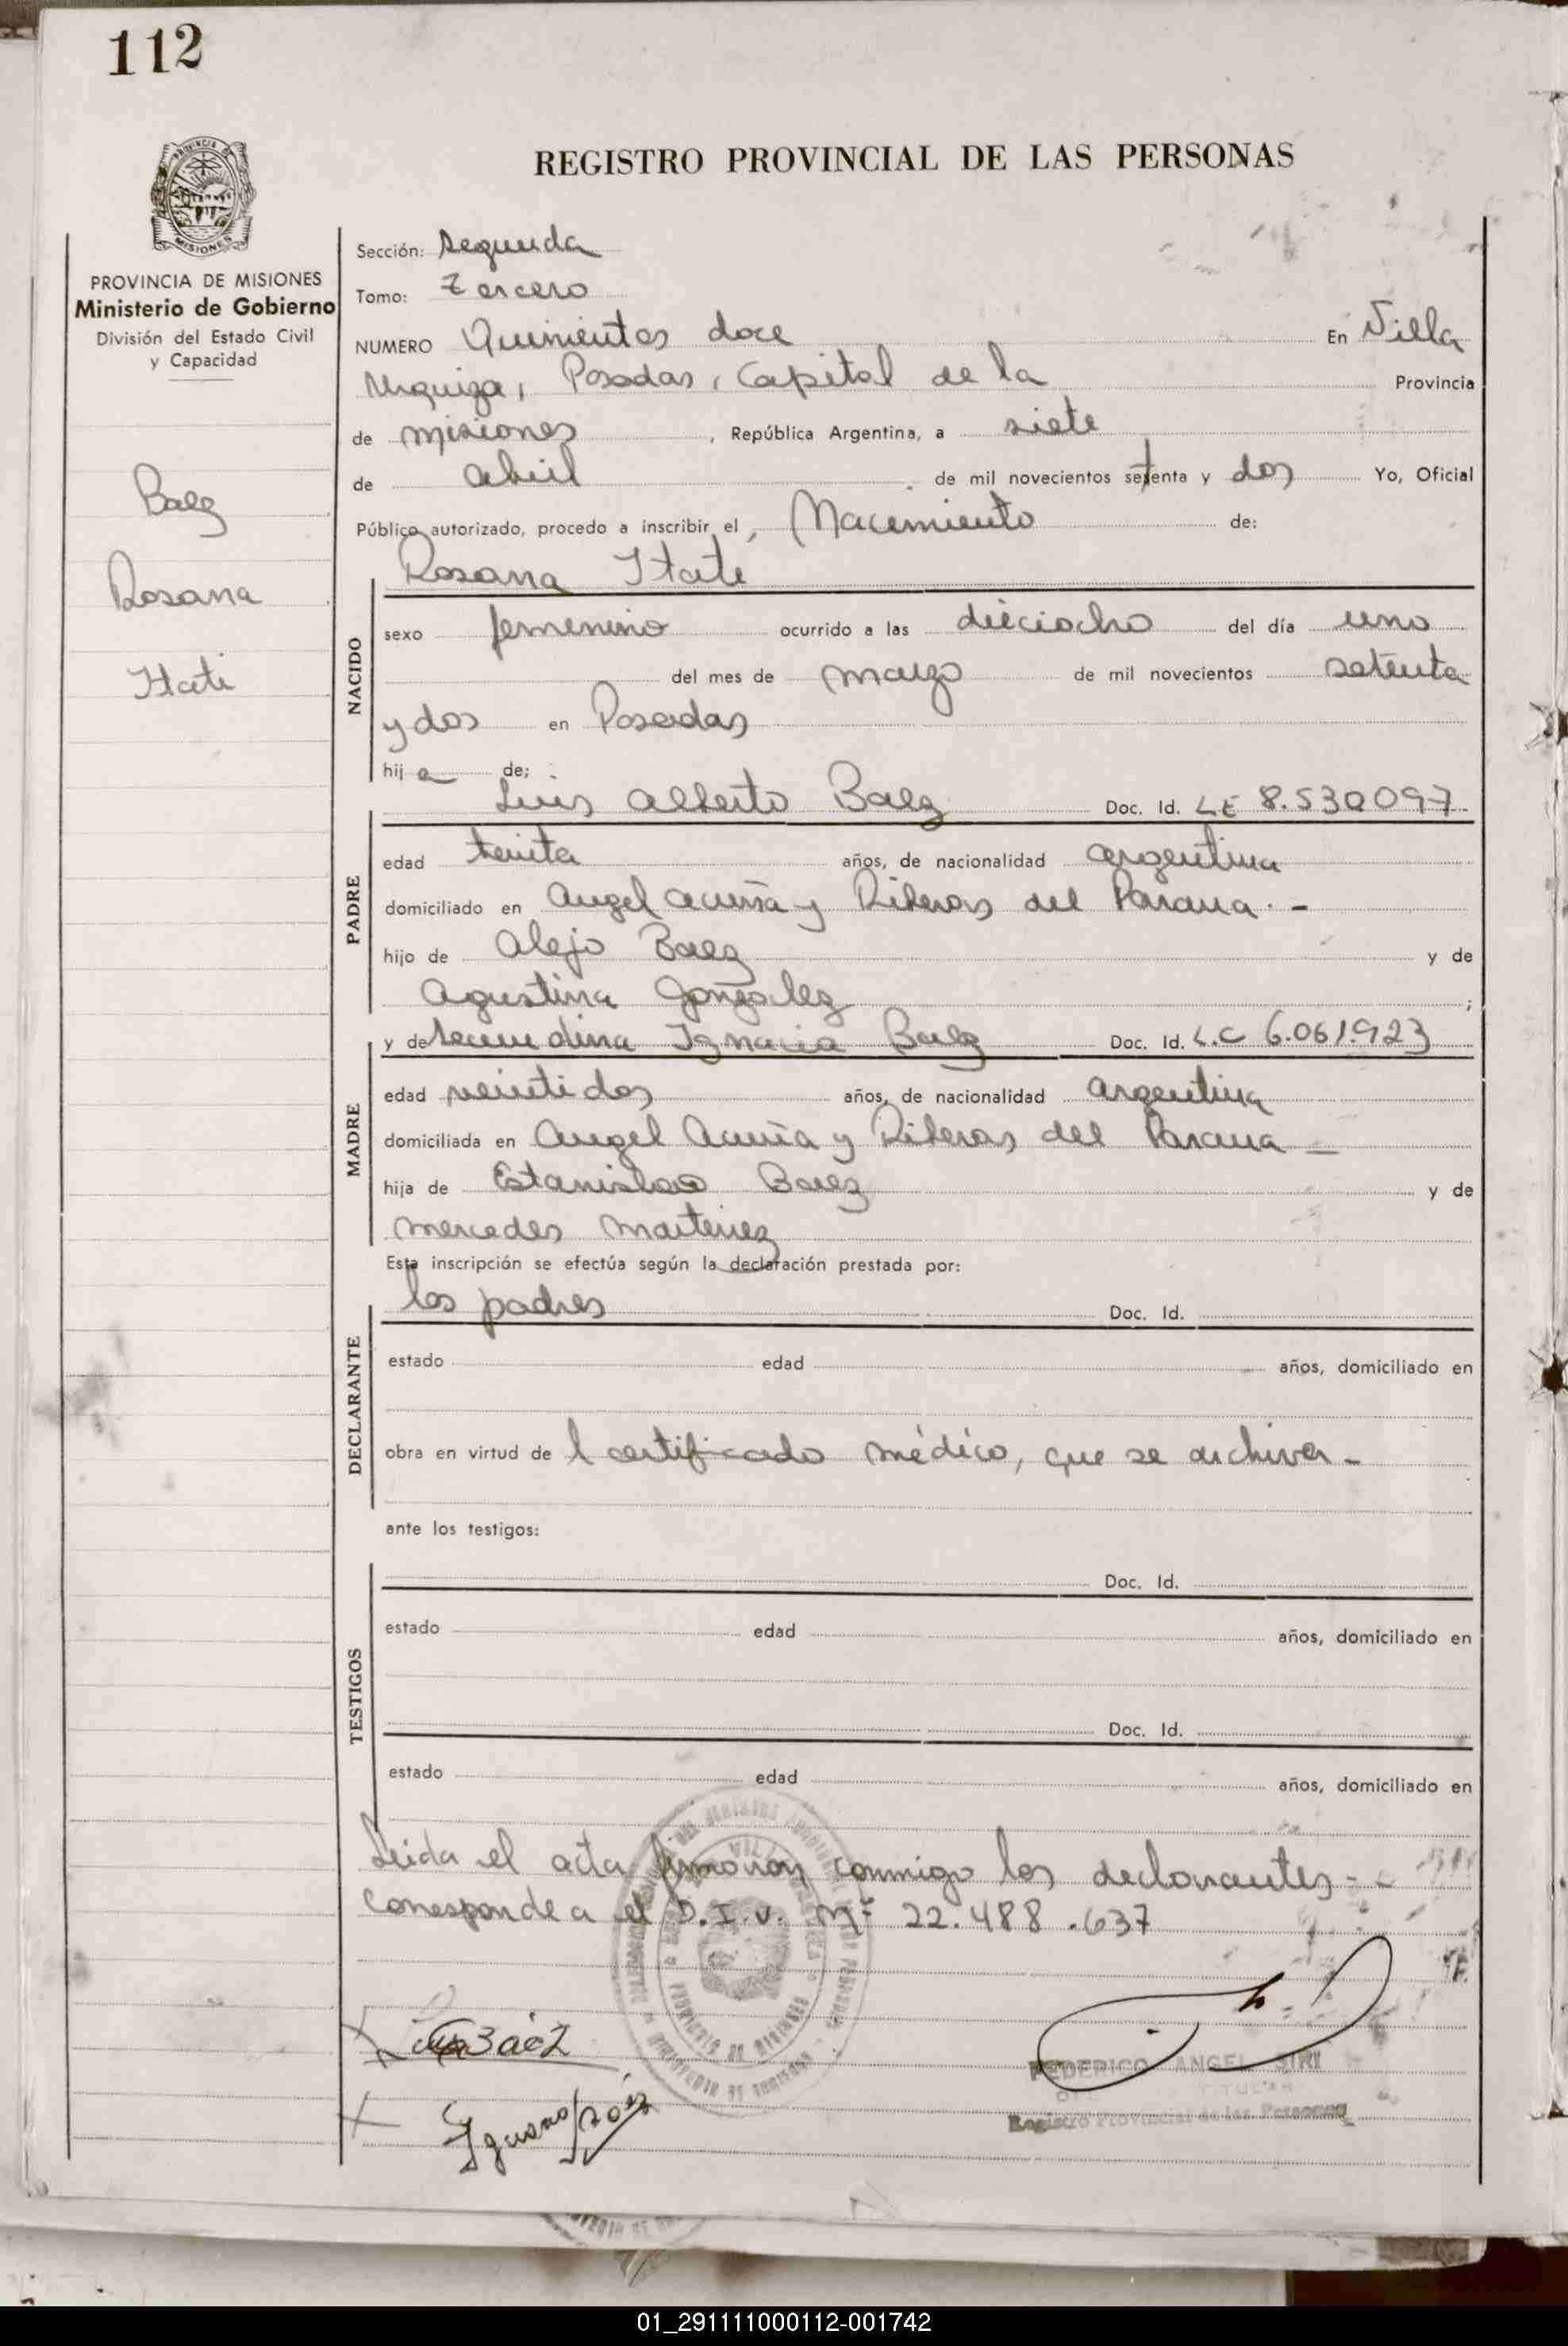 112
REGISTRO PROVINCIAL DE LAS PERSONAS
MISIONES
PROVINCIA DE MISIONES
Ministerio de Gobierno
División del Estado Civil
y Capacidad
Baez
Rosana
Itati
Sección: Segunda
Tomo: Tercero
NUMERO Quinientos doce En Villa
Urquiza, Posadas, Capital de la Provincia
de misiones, República Argentina, a siete
de abril de mil novecientos setenta y dos Yo, Oficial
Público autorizado, procedo a inscribir el, Nacimiento de:
Rosana Itati
NACIDO
sexo femenino ocurrido a las dieciocho del día uno
del mes de marzo de mil novecientos setenta
y dos en Posadas
hij a de;
Luis Alberto Baez Doc. Id. LE 8.530097
PADRE
edad treinta años, de nacionalidad argentina
domiciliado en Angel Acuña y Riberas del Parana. -
hijo de Alejo Baez y de
Agustina Gonzalez ;
y de Secundina Ignacia Baez Doc. Id. L.C 6.061.923
MADRE
edad veintidos años, de nacionalidad argentina
domiciliada en Angel Acuña y Riberas del Parana -
hija de Estanislao Baez y de
mercedes martinez
Esta inscripción se efectúa según la declaración prestada por:
los padres Doc. Id.
DECLARANTE
estado edad años, domiciliado en
obra en virtud de l certificado médico, que se archiva -
ante los testigos:
Doc. Id.
TESTIGOS
estado edad años, domiciliado en
Doc. Id.
estado edad años, domiciliado en
Leida el acta firmaron conmigo los declarantes - -
Corresponde a el D.I.U. Nº 22.488.637
Báez
FEDERICO ANGEL SIRI
Registro Provincial de las Personas
01_291111000112-001742